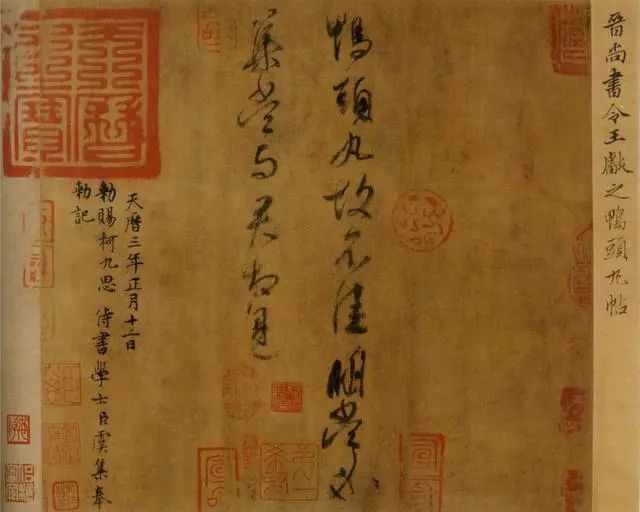 晉尚書令王獻之鴨頭丸帖
鴨頭丸故不佳明當必
集當与君相見
天曆三年正月十二日
勑賜柯九思侍書學士臣虞集奉
勑記
天曆之寶